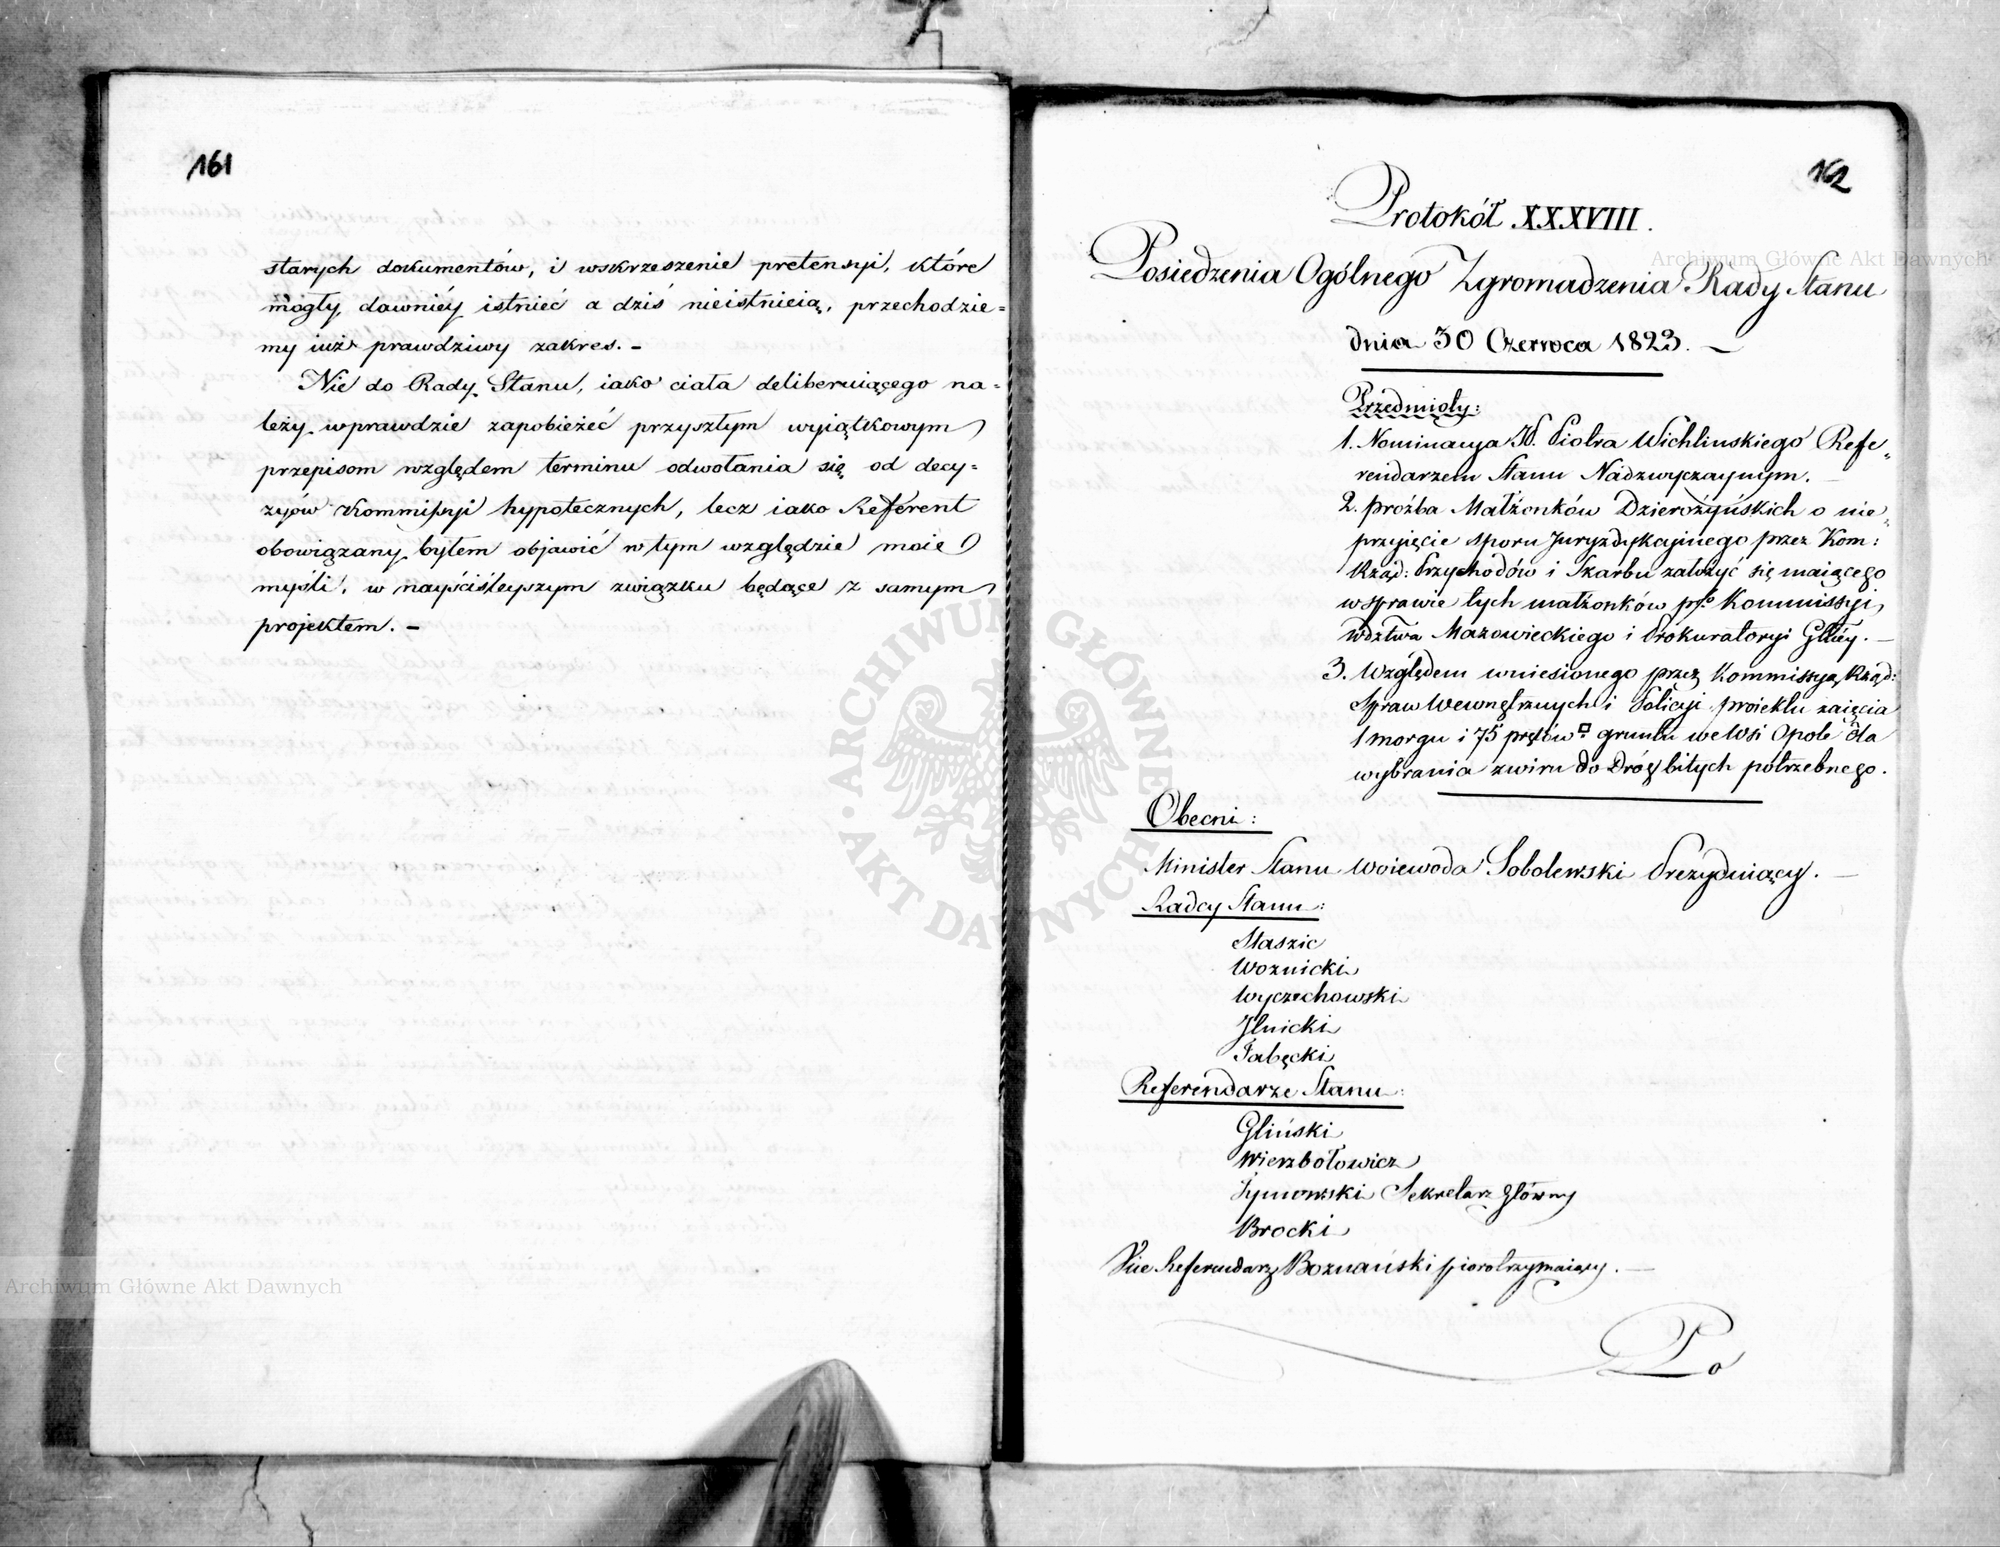 161
starych dokumentów, i wskrzeszenie pretensyi, które
mogły dawniéy istnieć a dziś nieistnieią, przechodzie=
my iuż prawdziwy zakres. –
Nie do Rady Stanu, iako ciała deliberuiącego na=
leży wprawdzie zapobieżéć przyszłym wyiątkowym
przepisom względem terminu odwołania się od decy=
zyów Kommissyi hypotecznych, lecz iako Referent
obowiązany byłem objawić w tym względzie moie
myśli, w nayściśleyszym związku będące z samym
projektem. –
162
Protokół XXXVIII.
Posiedzenia Ogólnego Zgromadzenia Rady Stanu
dnia 30 Czerwca 1823. –
Przedmioty:
1. Nominacya JP. Piotra Wichlinskiego Refe=
rendarzem Stanu Nadzwyczaynym. –
2. proźba Małżonków Dzierożyńskich o nie=
przyięcie sporu Juryzdykcyinego przez Kom:
Rząd: Przychodów i Skarbu założyć się maiącego
w sprawie tych małżonków pko Kommissyi
Wdztwa Mazowieckiego i Prokuratoryi Głłéy. –
3. Względem wniesionego przez Kommissyą Rząd:
Spraw Wewnętrznych i Policyi proiektu zaięcia
1 morgu i 75 prętów □ gruntu we Wsi Opole dla
wybrania zwiru do Dróg bitych potrzebnego.
Obecni:
Minister Stanu Woiewoda Sobolewski Prezyduiący. –
Radcy Stanu:
Staszic
Woznicki
Wyczechowski
Jlnicki
Łabęcki
Referendarze Stanu:
Gliński
Wierzbołowicz
Tymowski Sekretarz Główny
Brocki
Vice Referendarz Boznański piorotrzymaiący. –
Po
ARCHIWUM GŁÓWNE AKT DAWNYCH
Archiwum Główne Akt Dawnych
Archiwum Główne Akt Dawnych